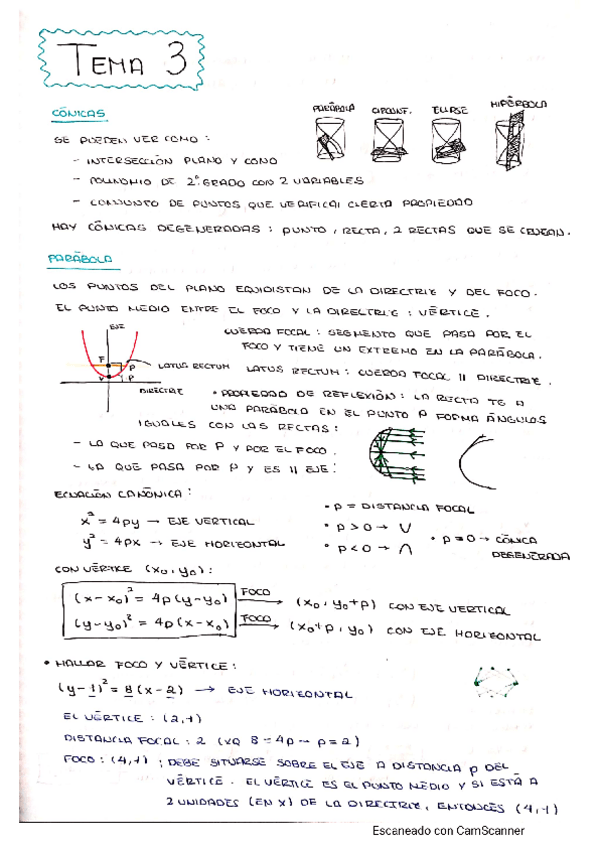 TEMA 3
CÓNICAS
PARÁBOLA CIRCUNF. ELIPSE HIPÉRBOLA
SE PUEDEN VER COMO :
- INTERSECCIÓN PLANO Y CONO
- POLINOMIO DE 2º GRADO CON 2 VARIABLES
- CONJUNTO DE PUNTOS QUE VERIFICAN CIERTA PROPIEDAD
HAY CÓNICAS DEGENERADAS : PUNTO, RECTA, 2 RECTAS QUE SE CRUZAN.
PARÁBOLA
LOS PUNTOS DEL PLANO EQUIDISTAN DE LA DIRECTRIZ Y DEL FOCO.
EL PUNTO MEDIO ENTRE EL FOCO Y LA DIRECTRIZ : VÉRTICE.
EJE
F
P
V
P
LATUS RECTUM
DIRECTRIZ
CUERDA FOCAL : SEGMENTO QUE PASA POR EL
FOCO Y TIENE UN EXTREMO EN LA PARÁBOLA.
LATUS RECTUM : CUERDA FOCAL || DIRECTRIZ.
• PROPIEDAD DE REFLEXIÓN : LA RECTA TG A
UNA PARÁBOLA EN EL PUNTO P FORMA ÁNGULOS
IGUALES CON LAS RECTAS :
- LA QUE PASA POR P Y POR EL FOCO.
- LA QUE PASA POR P Y ES || EJE.
ECUACIÓN CANÓNICA :
x² = 4py → EJE VERTICAL
y² = 4px → EJE HORIZONTAL
• P = DISTANCIA FOCAL
• P > 0 → ∪
• P < 0 → ∩
• P = 0 → CÓNICA
DEGENERADA
CON VÉRTICE (x₀, y₀) :
(x-x₀)² = 4p(y-y₀) FOCO → (x₀, y₀+p) CON EJE VERTICAL
(y-y₀)² = 4p(x-x₀) FOCO → (x₀+p, y₀) CON EJE HORIZONTAL
• HALLAR FOCO Y VÉRTICE :
(y-1)² = 8(x-2) → EJE HORIZONTAL
EL VÉRTICE : (2,1)
DISTANCIA FOCAL : 2 (XQ 8=4p → p=2)
FOCO : (4,1) ; DEBE SITUARSE SOBRE EL EJE A DISTANCIA p DEL
VÉRTICE. EL VÉRTICE ES EL PUNTO MEDIO Y SI ESTÁ A
2 UNIDADES (EN X) DE LA DIRECTRIZ, ENTONCES (4,1)
Escaneado con CamScanner